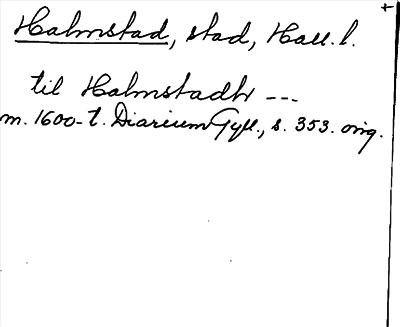 Halmstad, stad, Hall. l.
til Halmstadh ---
m. 1600-t. Diarium Gyll., s. 353. orig.